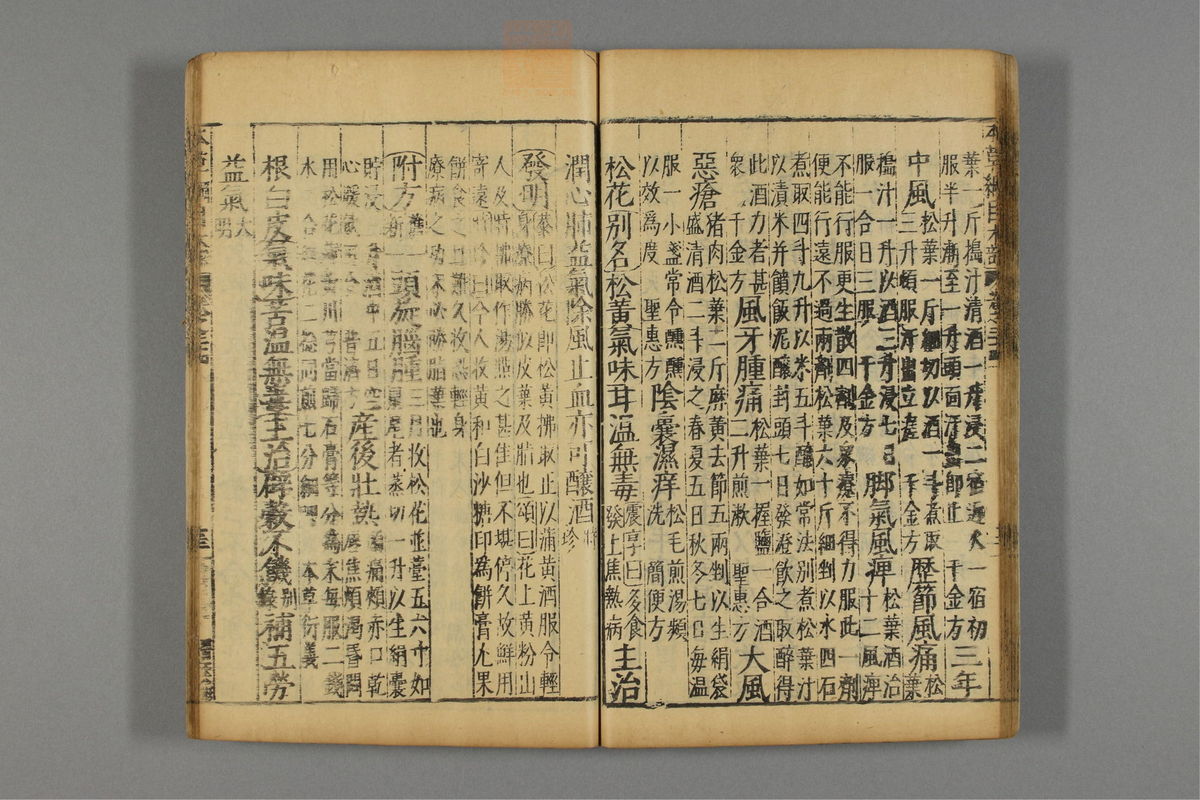 本草綱目木部
葉一斤搗汁清酒一瓶浸二宿近火一宿初
服半升漸至一升頭面汗出即止 千金方 三年
中風 松葉一斤細切以酒一斗煮取
三升頓服汗出立瘥 千金方 歷節風痛 松葉
搗汁一升以酒三升浸七日
服一合日三服 千金方 脚氣風痺 松葉酒治
十二風痺
不能行服更生散四劑及衆療不得力服此一劑
便能行遠不過兩劑松葉六十斤細剉以水四石
煮取四斗九升以米五斗釀如常法別煮松葉汁
以漬米并饙飯泥釀封頭七日發澄飲之取醉得
此酒力者甚
衆 千金方 風牙腫痛 松葉一握鹽一合酒
二升煎漱 聖惠方 大風
惡瘡 猪肉松葉二斤麻黃去節五兩剉以生絹袋
盛清酒二斗浸之春夏五日秋冬七日每溫
服一小盞常令醺醺
以效爲度 聖惠方 陰囊濕痒 松毛煎湯頻
洗 簡便方
松花別名松黃氣味甘溫無毒 震亨曰多食
發上焦熱病 主治
潤心肺益氣除風止血亦可釀酒 時珍
發明 恭曰松花即松黃拂取正以蒲黃酒服令輕
身療病勝似皮葉及脂也頌曰花上黃粉山
人及時拂取作湯點之甚佳但不堪停久故鮮用
寄遠時珍曰今人收黃和白沙糖印爲餅膏充果
餅食之且難久收恐輕身
療病之功未必勝脂葉也
附方 舊一新一 頭旋腦腫 三月收松花並薹五六寸如
鼠尾者蒸切一升以生絹囊
貯浸三升酒中五日空
心煖飲五合 普濟方 産後壯熱 頭痛頰赤口乾
唇焦煩渴昏悶
用松花蒲黃川芎當歸石膏等分爲末每服二錢
水二合紅花二捻同煎七分細呷 本草衍義
根白皮氣味苦溫無毒主治辟穀不饑 別錄 補五勞
益氣 大明